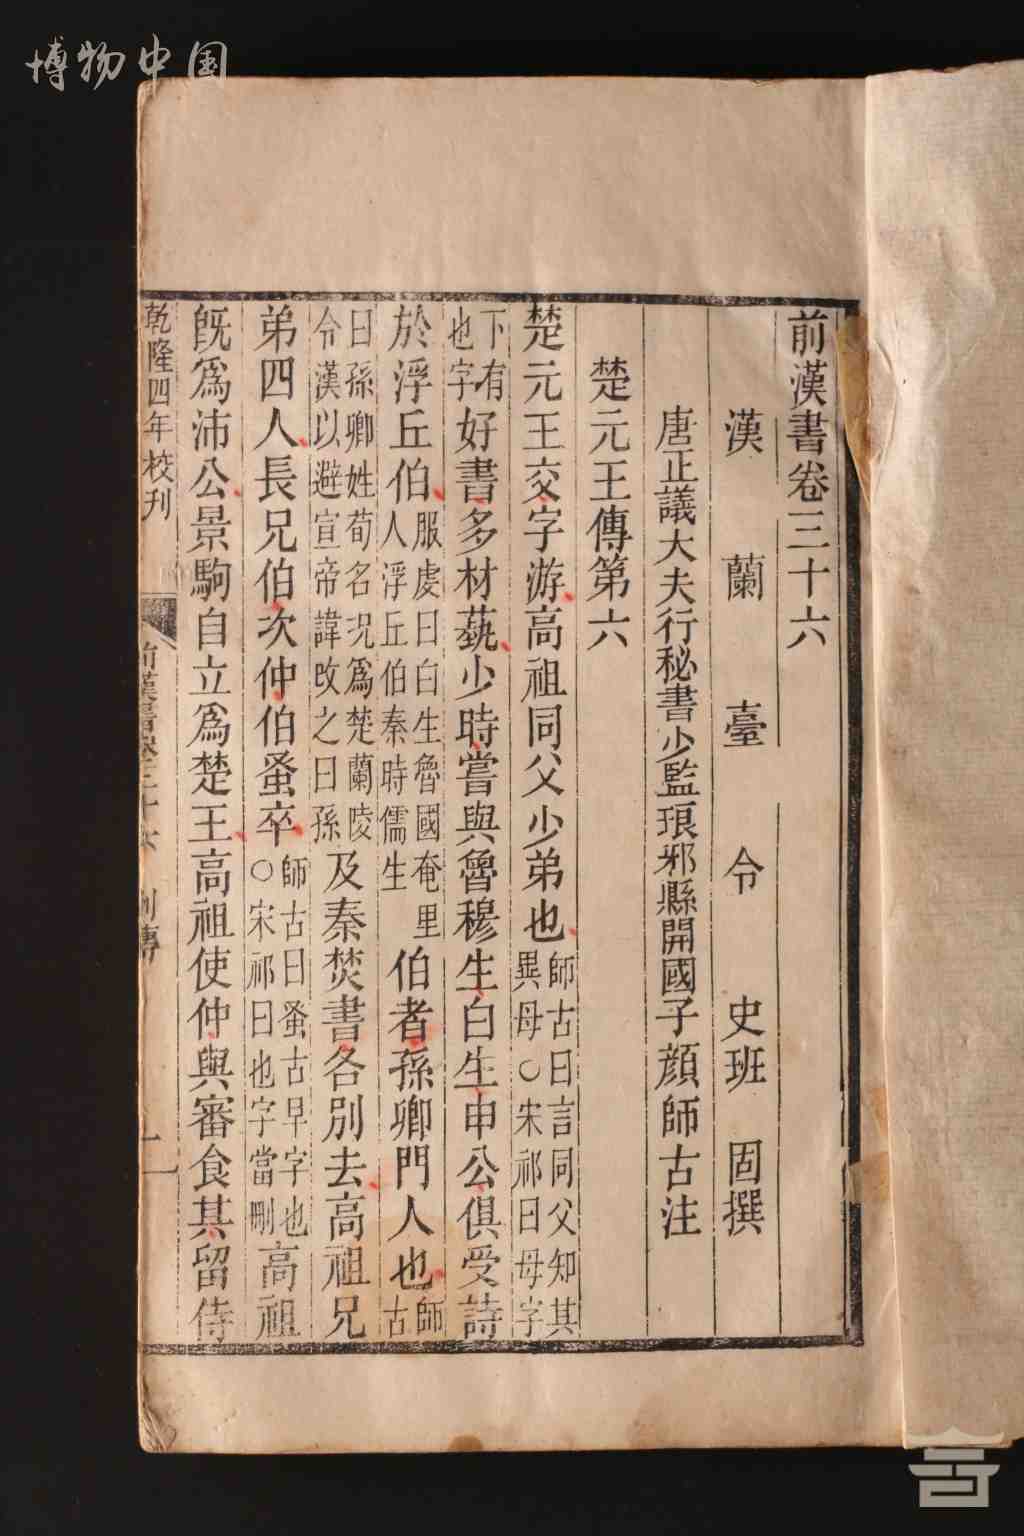 博物中国
前漢書卷三十六
漢蘭臺令史班固撰
唐正議大夫行秘書少監琅邪縣開國子顔師古注
楚元王傳第六
楚元王交字游高祖同父少弟也師古曰言同父知其異母○宋祁曰母字
下有也字好書多材蓺少時嘗與魯穆生白生申公俱受詩
於浮丘伯服虔曰白生魯國奄里人浮丘伯秦時儒生伯者孫卿門人也師古
曰孫卿姓荀名況爲楚蘭陵令漢以避宣帝諱改之曰孫及秦焚書各別去高祖兄
弟四人長兄伯次仲伯蚤卒師古曰蚤古早字也○宋祁曰也字當刪高祖
旣爲沛公景駒自立爲楚王高祖使仲與審食其留侍
乾隆四年校刊
前漢書卷三十六 列傳 一